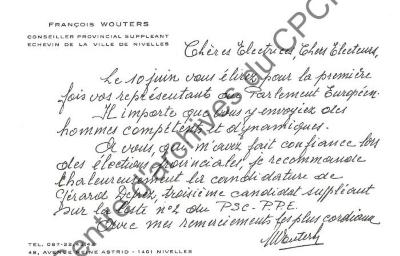 FRANÇOIS WOUTERS
CONSEILLER PROVINCIAL SUPPLEANT
ECHEVIN DE LA VILLE DE NIVELLES
Chères Electrices, Chers Electeurs,
Le 10 juin vous élirez pour la première
fois vos représentants au Parlement Européen.
Il importe que vous y envoyiez des
hommes compétents et dynamiques.
A vous, qui m'avez fait confiance lors
des élections provinciales, je recommande
chaleureusement la candidature de
Gérard Deprez, troisième candidat suppléant
sur la liste n°2 du PSC-PPE.
Avec mes remerciements les plus cordiaux
FWouters
TEL. 067-22
48, AVENUE REINE ASTRID - 1401 NIVELLES
Centre d'archives du CPCP